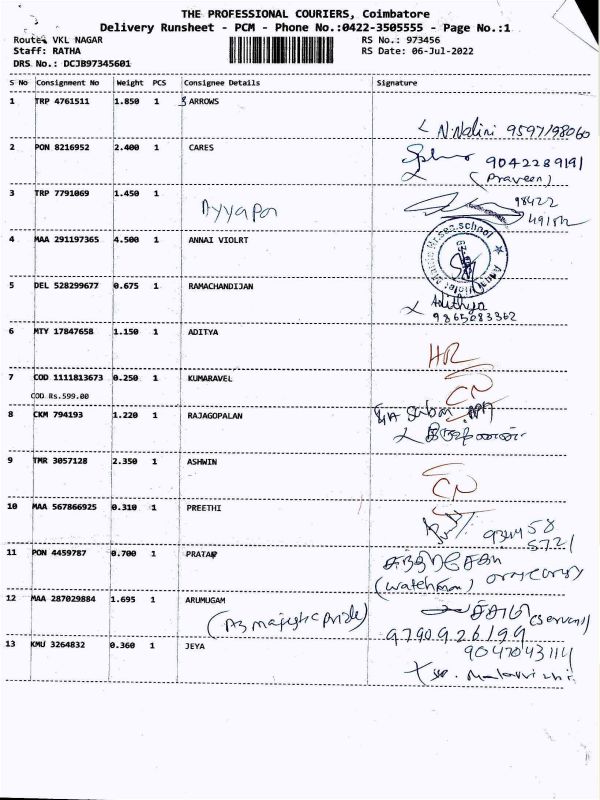 THE PROFESSIONAL COURIERS, Coimbatore
Delivery Runsheet - PCM - Phone No.:0422-3505555 - Page No.:1
Route: VKL NAGAR
RS No.: 973456
Staff: RATHA
RS Date: 06-Jul-2022
DRS No.: DCJB97345601
S No Consignment No Weight PCS Consignee Details Signature
1 TRP 4761511 1.850 1 ARROWS
N.Nalini 9597198060
2 PON 8216952 2.400 1 CARES
9042289191
(Praveen)
3 TRP 7791069 1.450 1
Ayyapan
98422
49152
4 MAA 291197365 4.500 1 ANNAI VIOLRT
5 DEL 528299677 0.675 1 RAMACHANDIJAN
Adithya
9865083362
6 MTY 17847658 1.150 1 ADITYA
HR
7 COD 1111813673 0.250 1 KUMARAVEL
CN
COD Rs.599.00
8 CKM 794193 1.220 1 RAJAGOPALAN
9 TMR 3057128 2.350 1 ASHWIN
CN
10 MAA 567866925 0.310 1 PREETHI
93445 58
5721
11 PON 4459787 0.700 1 PRATAP
(watchman)
12 MAA 287029884 1.695 1 ARUMUGAM
(A3 majestic pride)
9790926199
13 KMU 3264832 0.360 1 JEYA
9047043114